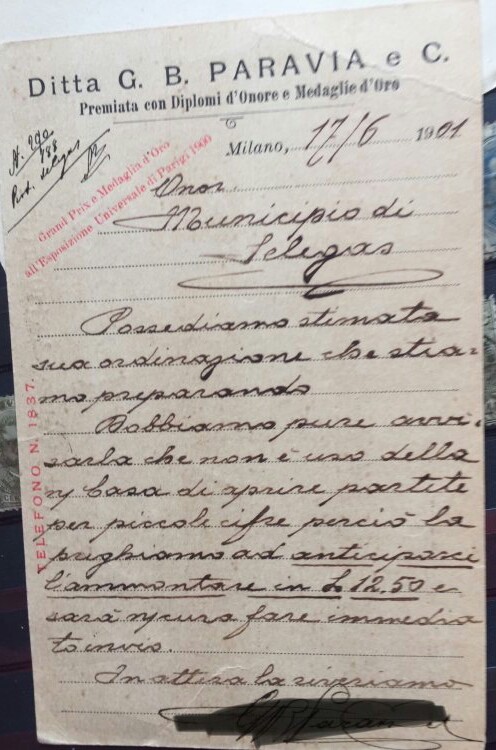 Ditta G. B. PARAVIA e C.
Premiata con Diplomi d'Onore e Medaglie d'Oro
Milano, 17/6 1901
Grand Prix e Medaglia d'Oro
all'Esposizione Universale di Parigi 1900
Prot. Selegas
Onor.
Municipio di
Selegas
Possediamo stimata
sua ordinazione che stia-
mo preparando
Dobbiamo pure avvi-
sarla che non è uso della
n/ Casa di aprire partite
per piccole cifre perciò la
preghiamo ad anticiparci
l'ammontare in £ 12,50 e
sarà n/ cura fare immedia
to invio.
In attesa la riveriamo
TELEFONO N. 1837.